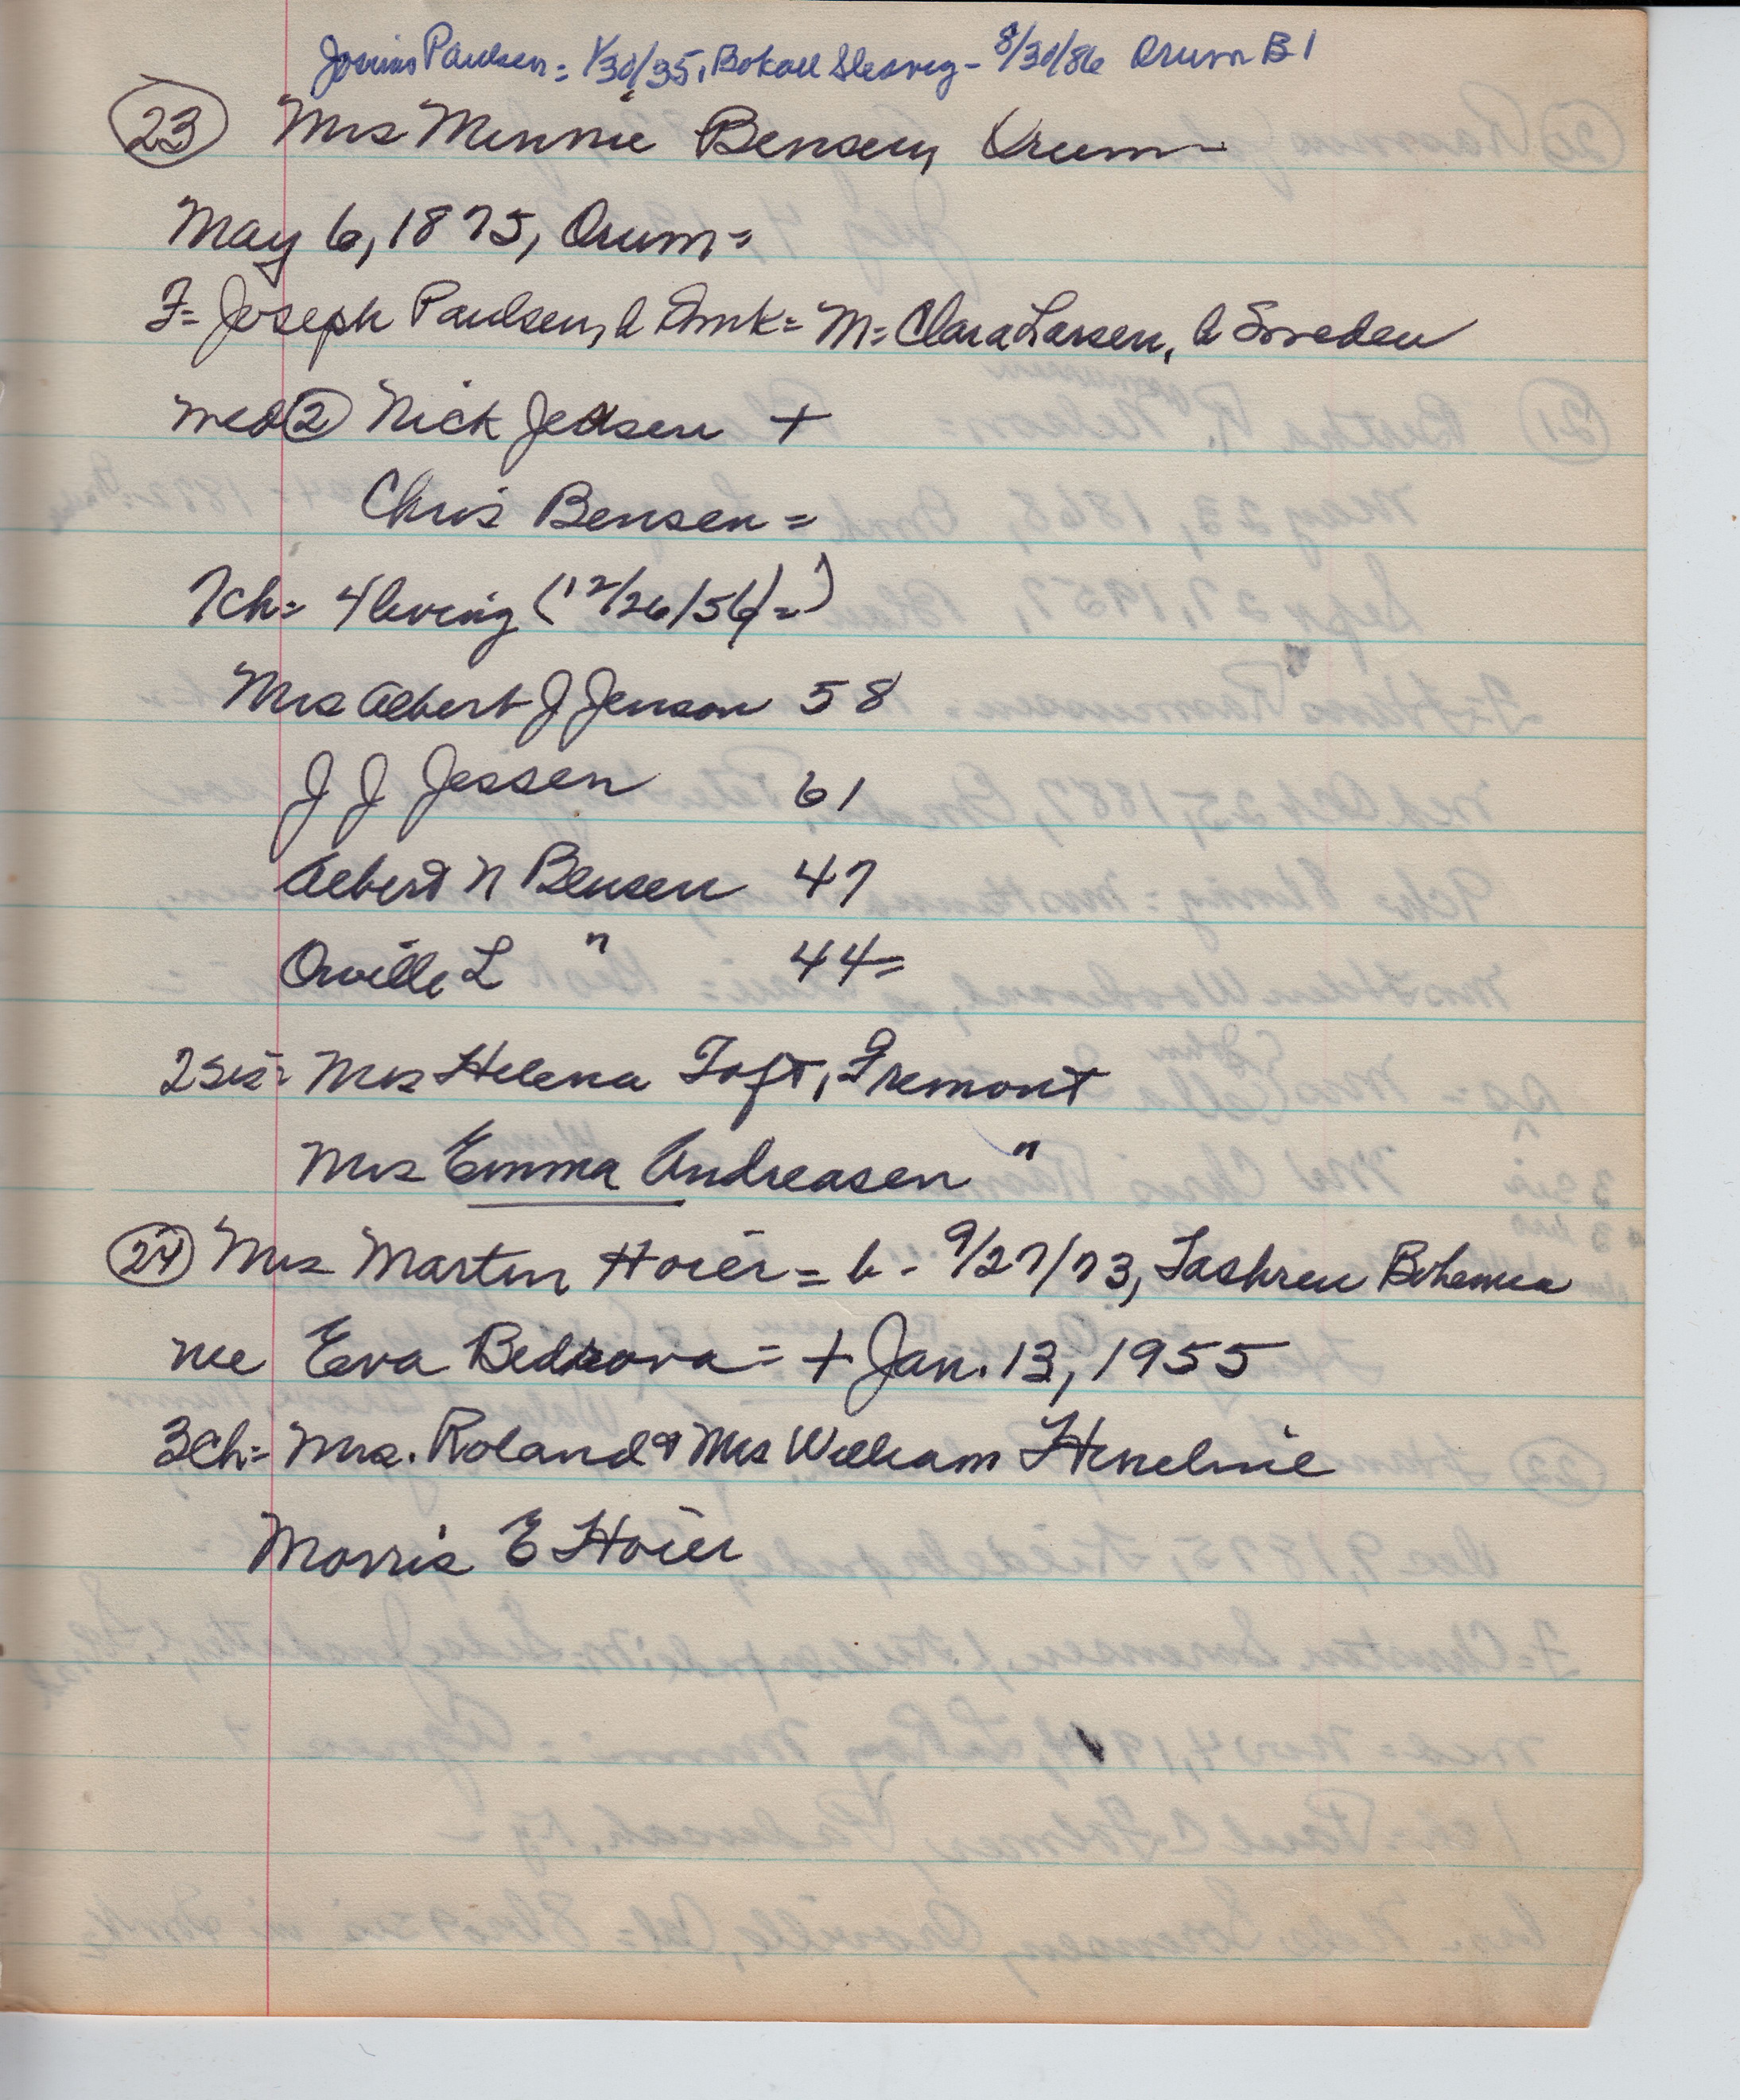 Paulsen = 1/30/35, Bokoll Slesvig - 8/30/86 Orum B1
(23) Mrs Minnie Bensen, Orum
May 6, 1875, Orum =
F= Joseph Paulsen, b Dmk = M= Clara Larsen, b Sweden
med (2) Nick Jessen +
Chris Bensen =
7ch= 4 living (12/26/56)=)
Mrs Albert J Jenson 58
J J Jessen 61
Albert N Bensen 47
Orville L " 44=
2 sis= Mrs Helena Toft, Fremont
Mrs Emma Andreasen "
(24) Mrs Martin Hoier = b - 9/27/73, Bohemia
nee Eva Bedrova = + Jan. 13, 1955
3ch= Mrs. Roland & Mrs William Hineline
Morris E Hoier